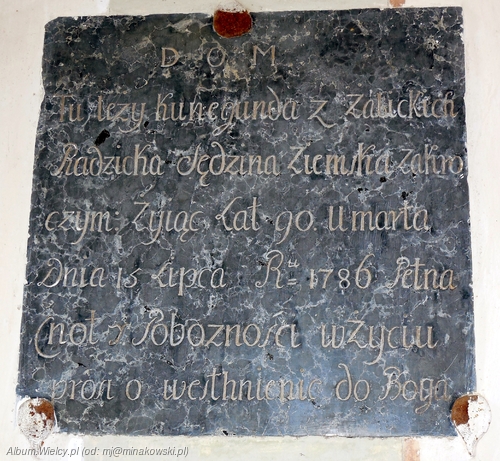 D O M
Tu leży Kunegunda z Załuckich
Radzicka Sędzina Ziemska Zakro
czym: Żyiąc Lat 90. Umarła
Dnia 15 Lipca R:u 1786 Pełna
Cnot y Pobozności w Życiu
prosi o westhnienie do Boga
Album.Wielcy.pl (od: mj@minakowski.pl)